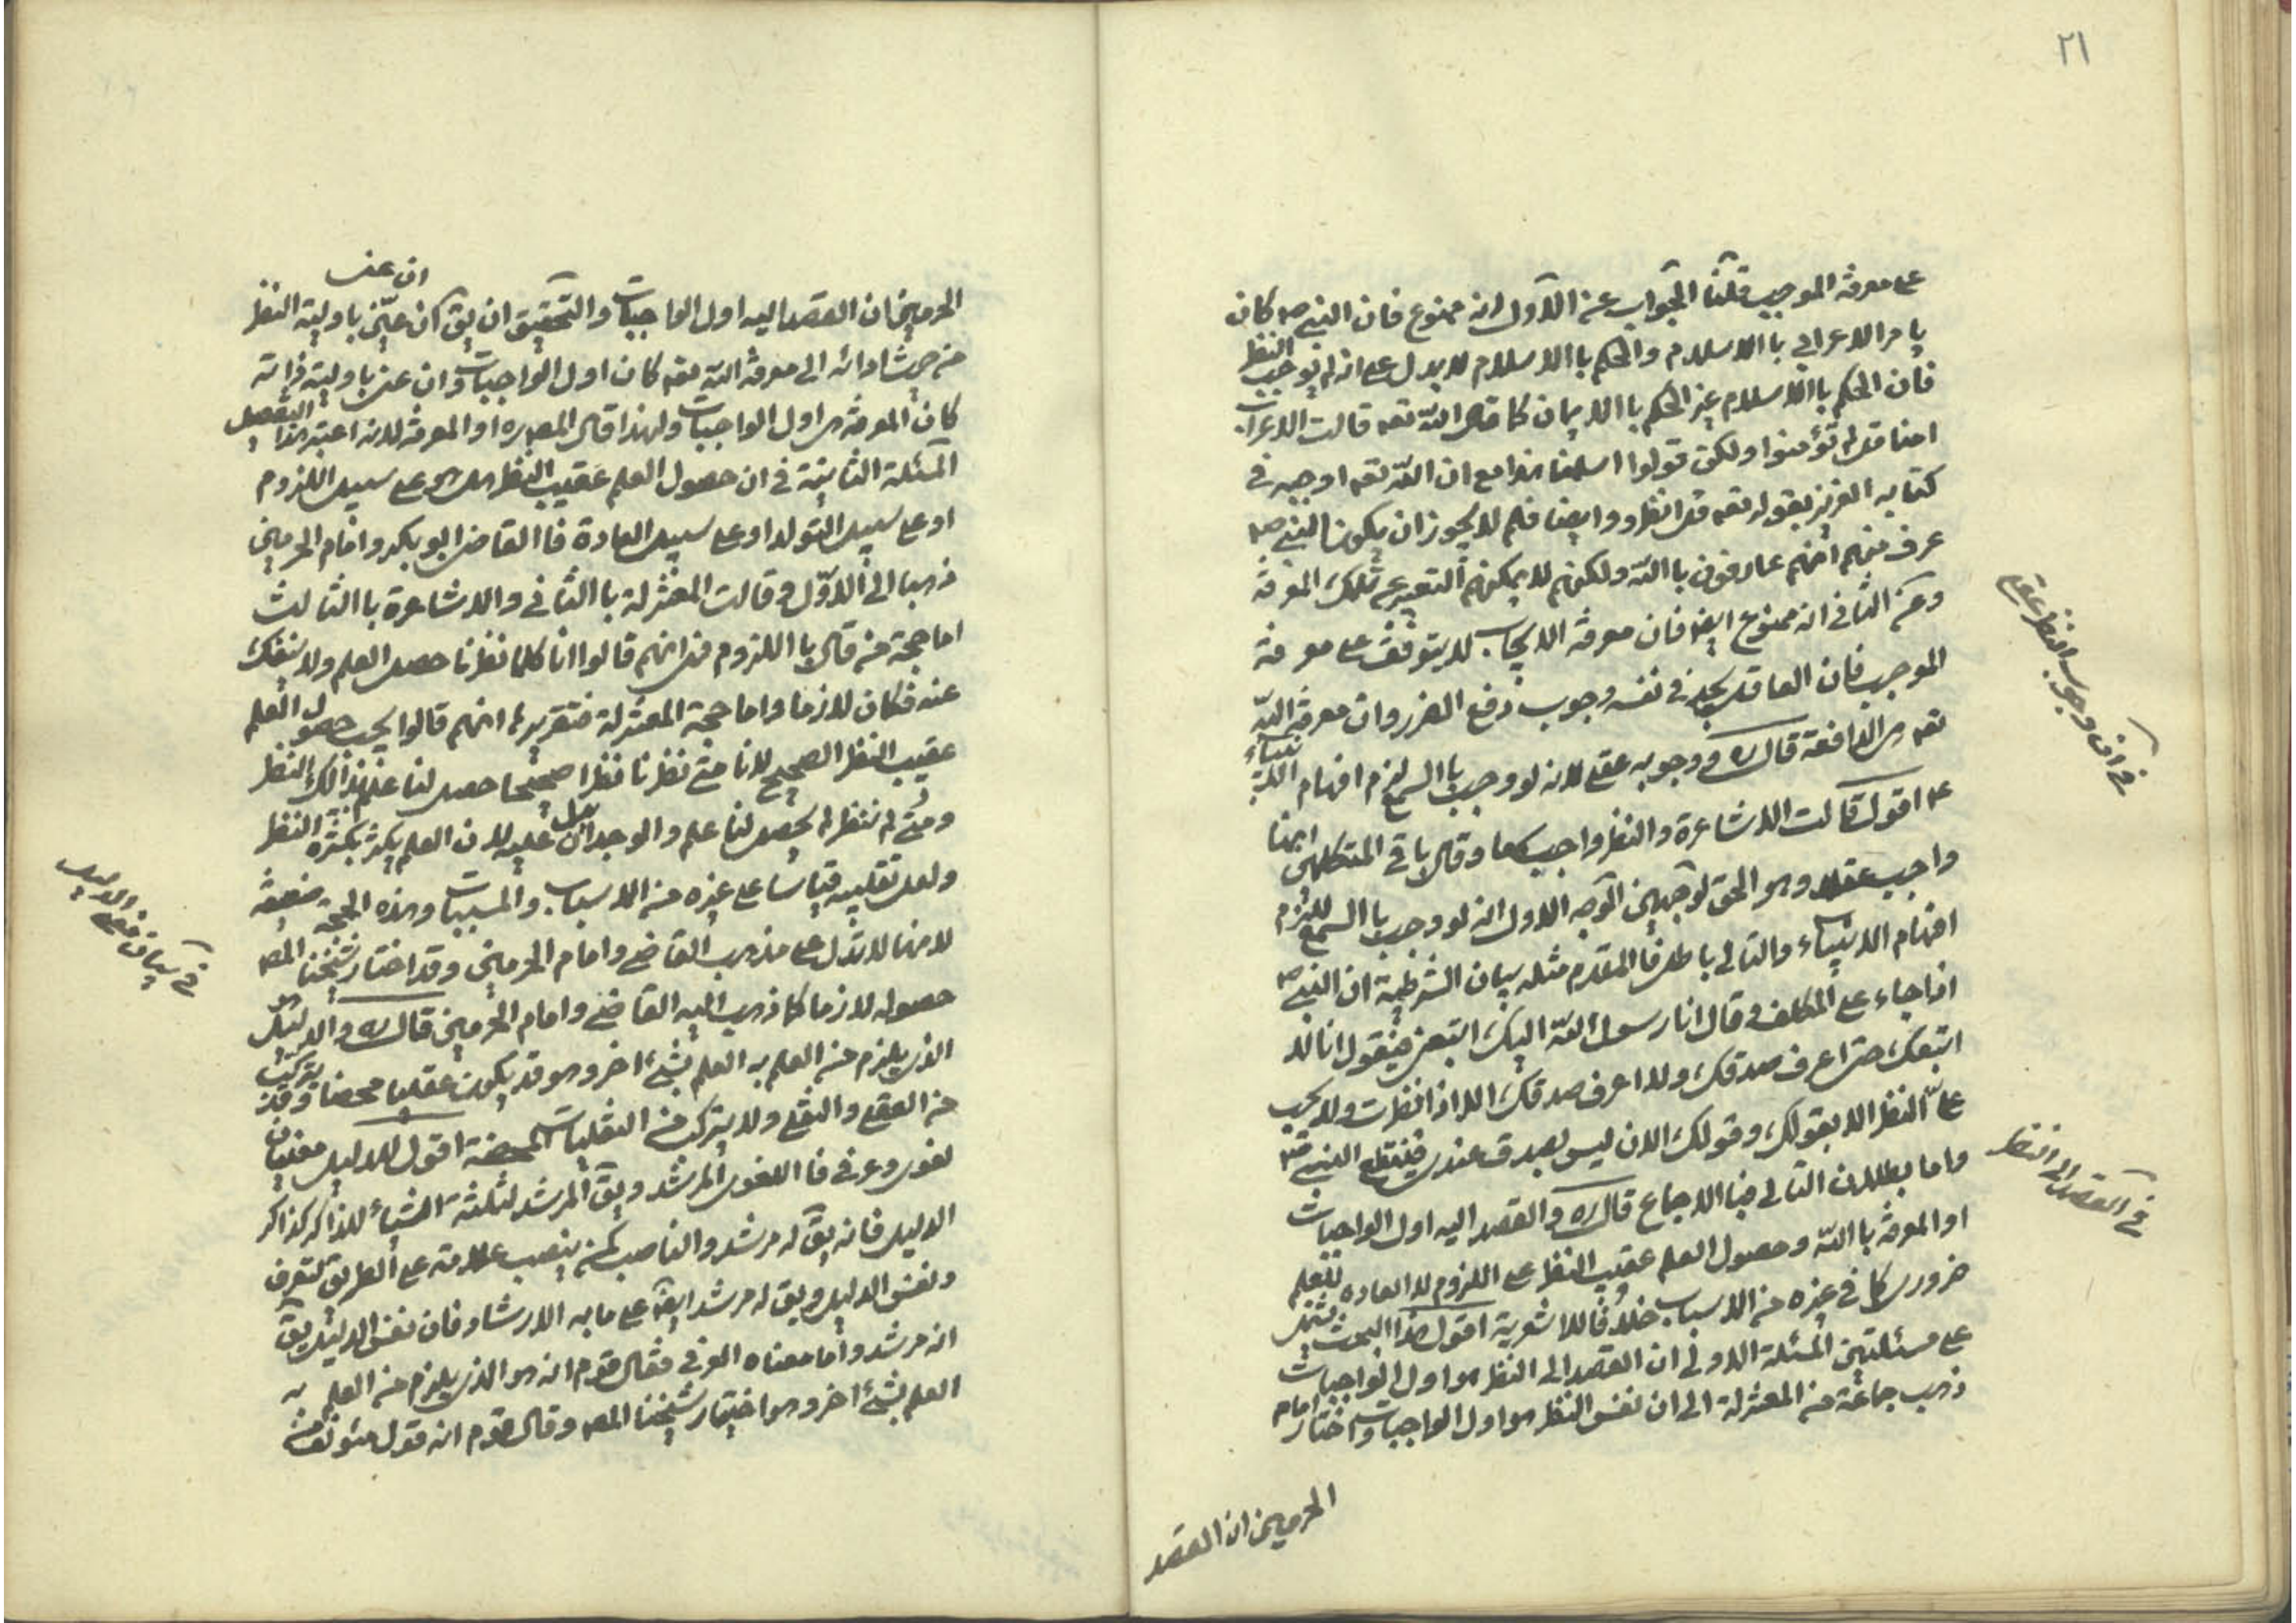 ٢١
على معرفة الموجب قلنا الجواب عن الاول انه ممنوع فان النبي ص كان
يامر الاعرابي با الاسلام والحكم با الاسلام لا يدل على انه لم يوجب النظر
فان الحكم با الاسلام غير الحكم با الايمان كما قال الله تعه قالت الاعراب
امنا قل لم تؤمنوا ولكن قولوا اسلمنا هذا مع ان الله تعه اوجبه في
كتابه العزيز بقوله تعه قل انظروا وايضا فلم لا يجوز ان يكون النبي ص
عرف منهم انهم عارفون با الله ولكنهم لا يمكنهم التعبير عن تلك المعرفة
وعن الثاني انه ممنوع ايضا فان معرفة الايجاب لا يتوقف على معرفة
الموجب فان العاقل يجد في نفسه وجوب دفع الضرر وان معرفة الله
تعه هي الدافعة قال ره ووجوبه عقلي لانه لو وجب با السمع لزم افحام الانبياء
ع اقول قالت الاشاعرة والنظر واجب سمعا وقال باقي المتكلمين انما
واجب عقلا وهو الحق لوجهين الوجه الاول انه لو وجب با السمع للزم
افحام الانبياء والتالي باطل فا المقدم مثله بيان الشرطية ان النبي ص
اذا جاء على المكلف وقال انا رسول الله اليك اتبعني فيقول انا لا
اتبعك حتى اعرف صدقك ولا اعرف صدقك الا اذا نظرت ولا يجب
على النظر الا بقولك وقولك الان ليس بصدق عندي فينقطع النبي
واما بطلان التالي فبا الاجماع قال ره والقصد اليه اول الواجبات
او المعرفة با الله وحصول العلم عقيب النظر على اللزوم لا العادة للعلم
ضروري كما في غيره من الاسباب خلافا للاشعرية اقول هذا البحث يشتمل
على مسئلتين المسئلة الاولى ان القصد الى النظر هو اول الواجبات
ذهب جماعة من المعتزلة الى ان نفس النظر هو اول الواجبات واختار امام
الحرمين ان القصد
في ان وجوب النظر عقلي
في القصد الى النظر
ان عنى
الحرمين ان القصد اليه اول الواجبات والتحقيق ان يق كان عنى باولية النظر
من حيث ادائه الى معرفة الله تعه كان اول الواجبات وان عنى باولية ذاته
كان المعرفة هي اول الواجبات ولهذا قال المص ره او المعرفة لانه اعتبر هذا التفصيل
المسئلة الثانية في ان حصول العلم عقيب النظر هل هو على سبيل اللزوم
او على سبيل التولد او على سبيل العادة فا القاضي ابو بكر وامام الحرمين
ذهبا الى الاول وقالت المعتزلة با الثاني والاشاعرة با الثالث
اما حجة من قال با اللزوم فـ انهم قالوا انا كلما نظرنا حصل العلم ولا ينفك
عنه فكان لازما واما حجة المعتزلة فتقريرها انهم قالوا يجب حصول العلم
عقيب النظر الصحيح لانا متى نظرنا نظرا صحيحا حصل لنا علم بذالك النظر
ومتى لم ننظر لم يحصل لنا علم والوجدان يدل عليه لان العلم يكثر بكثرة النظر
ولعل تقليبه قياسا على غيره من الاسباب والمسببات وهذه الحجة ضعيفة
لانها لا تدل على مذهب القاضي وامام الحرمين وقد اختار شيخنا المص
حصوله لازما كما ذهب اليه القاضي وامام الحرمين قال ره والدليل هو
الذي يلزم من العلم به العلم بشئ اخر وهو قد يكون عقليا محضا وقد يتركب
من العقلي والنقلي ولا يتركب من النقليات المحضة اقول للدليل معنيان
لغوي وعرفي فا اللغوي المرشد ويق المرشد لثلثة اشياء للذاكر كذاكر
الدليل فانه يق له مرشد والناصب كمن ينصب علامة على الطريق لتعرف
ولنفس الدليل ويق له مرشد ايضا على ما به الارشاد فان نفس الدليل يق
انه مرشد واما معناه العرفي فقال قوم انه هو الذي يلزم من العلم به
العلم بشئ اخر وهو اختيار شيخنا المص وقال قوم انه قول مئولف
في بيان معنى الدليل